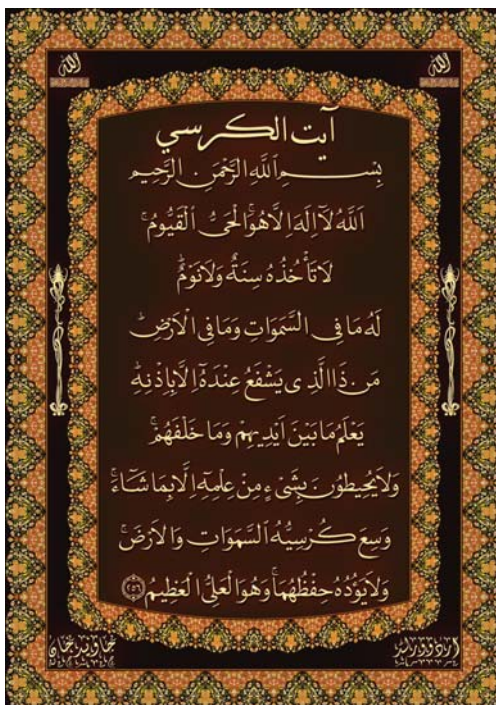 الله الله
آيت الكرسي
بِسْمِ ٱللَّهِ الرَّحْمَٰنِ الرَّحِيمِ
اَللَّهُ لَآ اِلَهَ اِلَّا هُوَ ۚ الْحَىُّ الْقَيُّومُ ۚ
لَا تَأْخُذُهُ سِنَةٌ وَلَا نَوْمٌ ؕ
لَهُ مَا فِى السَّمَوَاتِ وَمَا فِى الْاَرْضِ ؕ
مَن ذَا الَّذِى يَشْفَعُ عِنْدَهٗٓ اِلَّا بِاِذْنِهٖ ؕ
يَعْلَمُ مَا بَيْنَ اَيْدِيهِمْ وَمَا خَلْفَهُمْ ۚ
وَلَا يُحِيطُونَ بِشَىْءٍ مِنْ عِلْمِهٖٓ اِلَّا بِمَا شَآءَ ۚ
وَسِعَ كُرْسِيُّهُ السَّمَوَاتِ وَالْاَرْضَ ۚ
وَلَا يَؤُدُهُ حِفْظُهُمَا ۚ وَهُوَ الْعَلِىُّ الْعَظِيمُ